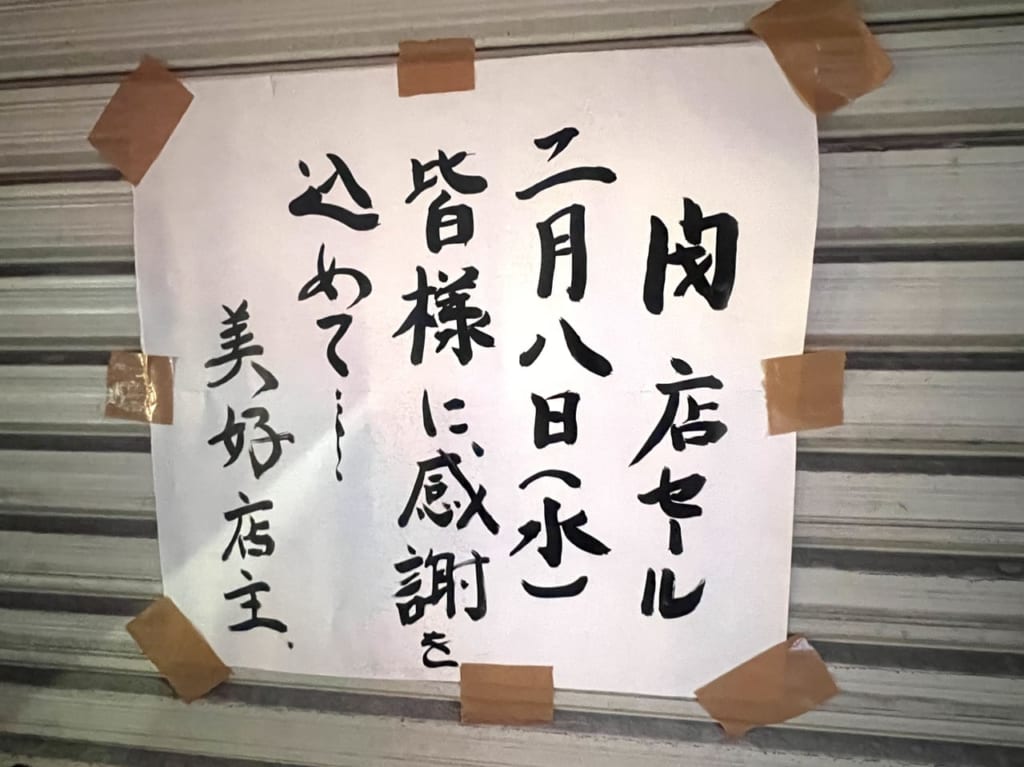 閉店セール
二月八日(水)
皆様に、感謝を
込めて……
美好店主.